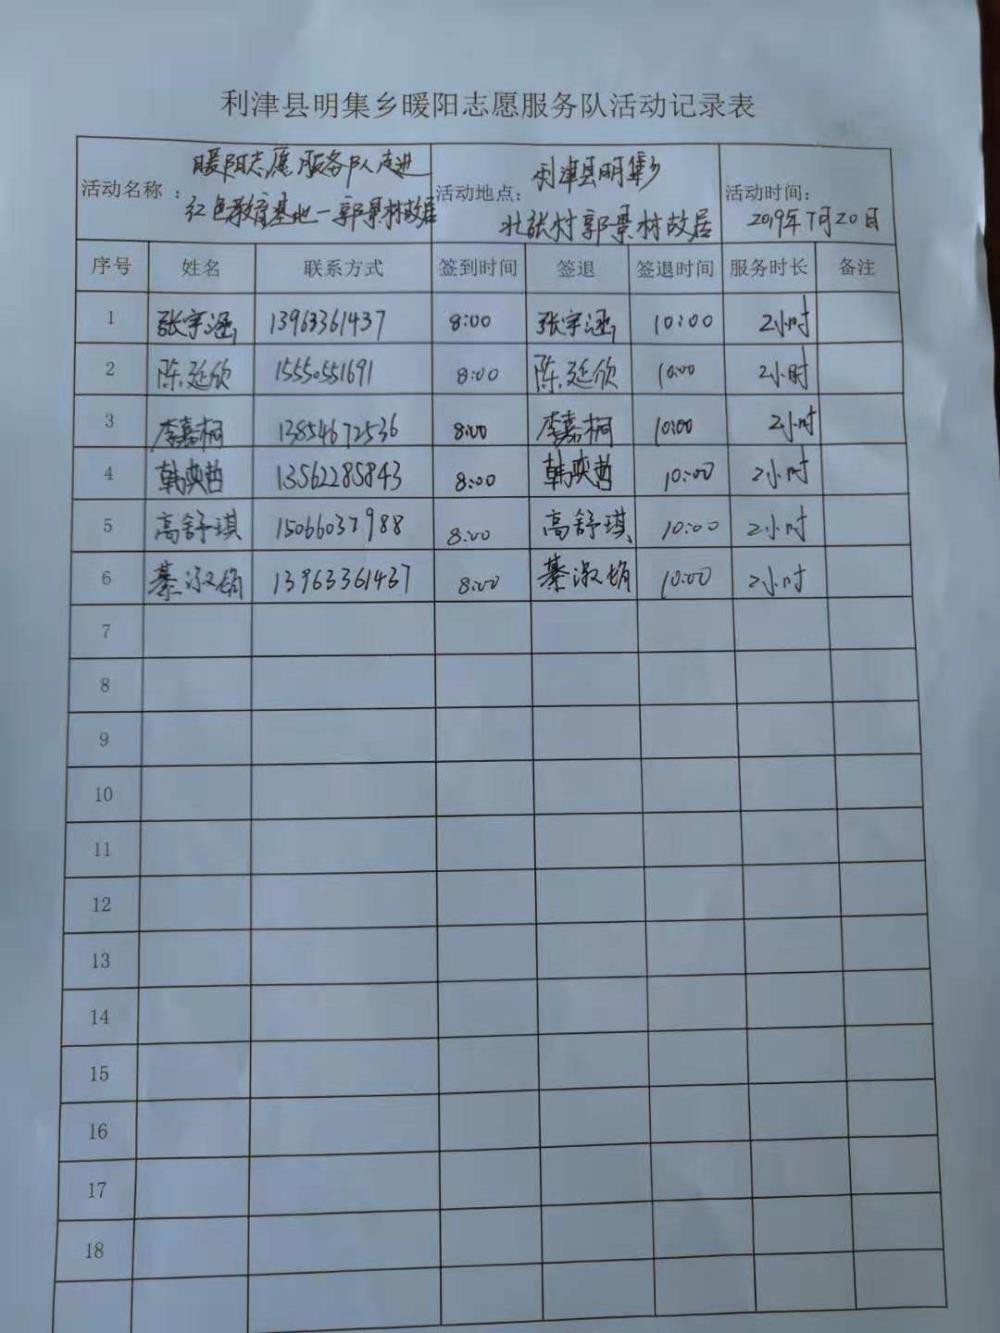 利津县明集乡暖阳志愿服务队活动记录表
活动名称： 暖阳志愿服务队走进 活动地点： 利津县明集乡 活动时间：
红色教育基地—郭景林故居 北张村郭景林故居 2019年7月20日
序号 姓名 联系方式 签到时间 签退 签退时间 服务时长 备注
1 张宇涵 13963361437 8:00 张宇涵 10:00 2小时
2 陈延欣 15550551691 8:00 陈延欣 10:00 2小时
3 李嘉桐 13854672536 8:00 李嘉桐 10:00 2小时
4 韩奕哲 13562285843 8:00 韩奕哲 10:00 2小时
5 高舒琪 15066037988 8:00 高舒琪 10:00 2小时
6 綦淑娟 13963361437 8:00 綦淑娟 10:00 2小时
7
8
9
10
11
12
13
14
15
16
17
18